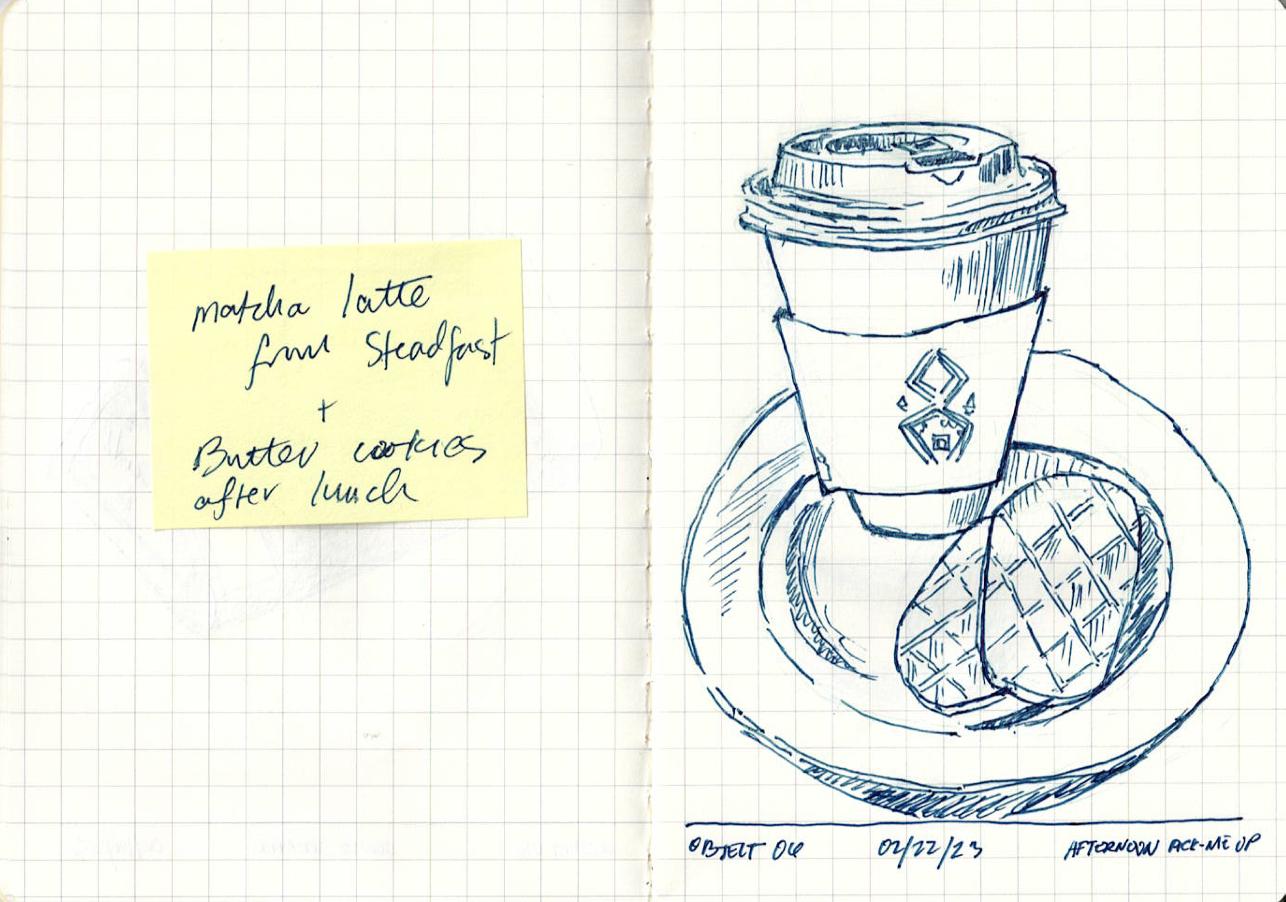 matcha latte
from Steadfast
+
Butter cookies
after lunch
OBJECT 06 02/22/23 AFTERNOON PICK-ME UP